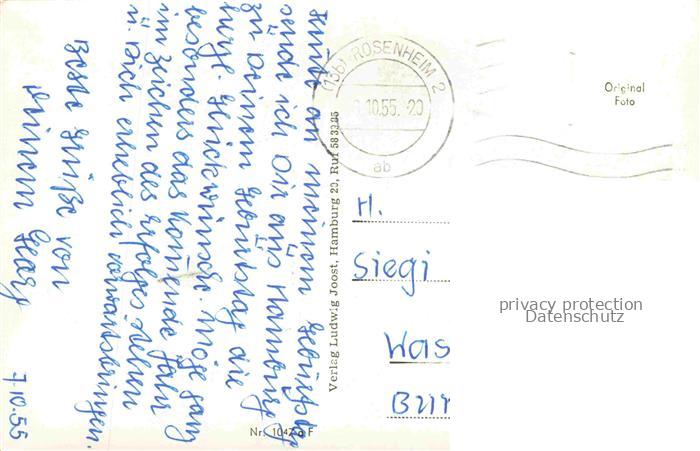 Heute an meinem Geburtstag
sende ich Dir aus Hamburg
zu Deinem Geburtstag die
Glückwünsche. Möge ganz
besonders das kommende Jahr
im Zeichen des Erfolges stehen
u. Dich erheblich vorwärtsbringen.
Beste Grüße von
Deinem Georg
7.10.55
Verlag Ludwig Joost, Hamburg 20, Ruf 58 33 85
Nr. 1047 a F
(13b) ROSENHEIM 2
10.55. 20
ab
Original
Foto
H.
Siegi
Was
Bur
privacy protection
Datenschutz